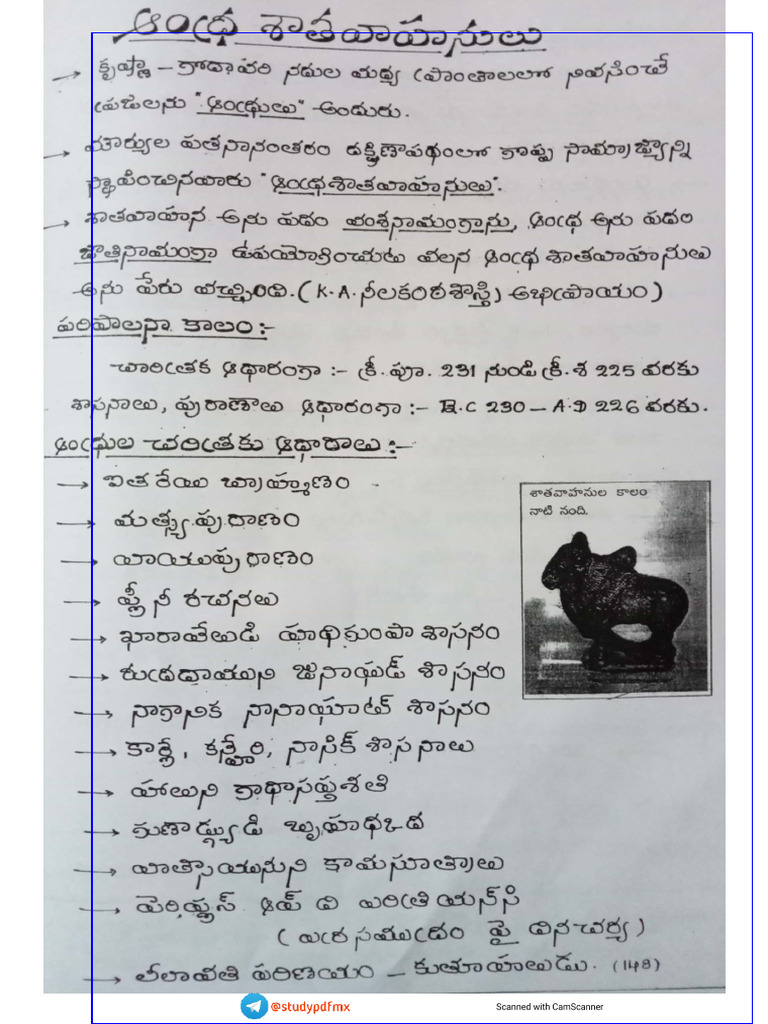 ఆంధ్ర శాతవాహనులు
→ కృష్ణా – గోదావరి నదుల మధ్య ప్రాంతాలలో నివసించే
ప్రజలను "ఆంధ్రులు" అందురు.
→ మౌర్యుల పతనానంతరం దక్షిణాపథంలో గొప్ప సామ్రాజ్యాన్ని
స్థాపించినవారు "ఆంధ్రశాతవాహనులు".
→ శాతవాహన అను పదం వంశనామంగాను, ఆంధ్ర అను పదం
జాతినామంగా ఉపయోగించుట వలన ఆంధ్ర శాతవాహనులు
అను పేరు వచ్చింది. (K.A. నీలకంఠశాస్త్రి అభిప్రాయం)
పరిపాలనా కాలం :-
చారిత్రక ఆధారంగా :- క్రీ.పూ. 231 నుండి క్రీ.శ 225 వరకు
శాసనాలు, పురాణాలు ఆధారంగా :- B.C 230 – A.D 226 వరకు.
ఆంధ్రుల చరిత్రకు ఆధారాలు :-
→ ఐతరేయ బ్రాహ్మణం
→ మత్స్యపురాణం
→ వాయుపురాణం
→ ప్లీనీ రచనలు
→ ఖారవేలుడి హాథిగుంఫా శాసనం
→ రుద్రదాముని జునాఘడ్ శాసనం
→ నాగానిక నానాఘాట్ శాసనం
→ కార్లే, కన్హేరి, నాసిక్ శాసనాలు
→ హాలుని గాథాసప్తశతి
→ గుణాఢ్యుడి బృహత్కథ
→ వాత్సాయనుని కామసూత్రాలు
→ పెరిప్లస్ ఆఫ్ ది ఎరిత్రియన్‌సి
(ఎర్రసముద్రం పై దినచర్య)
→ లీలావతి పరిణయం – కుతూహలుడు. (148)
శాతవాహనుల కాలం
నాటి నంది.
@studypdfmx
Scanned with CamScanner